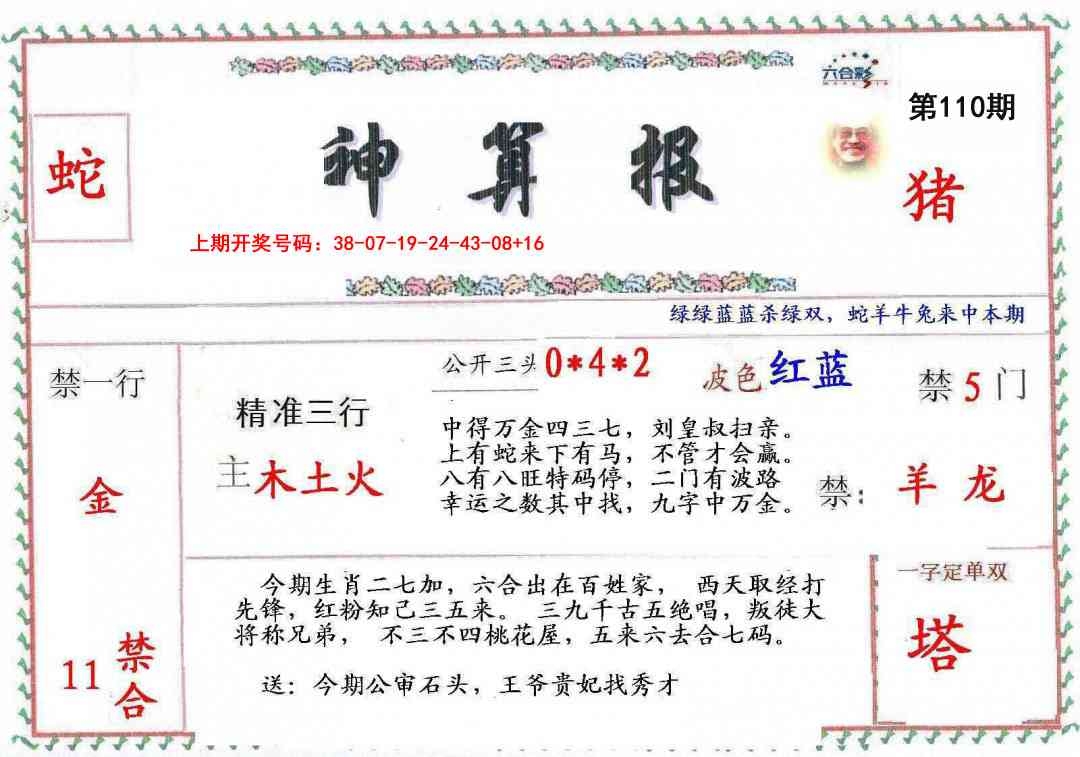 六合彩
第110期
蛇
神算报
猪
上期开奖号码：38-07-19-24-43-08+16
绿绿蓝蓝杀绿双，蛇羊牛兔来中本期
禁一行
金
11
禁合
精准三行
主木土火
公开三头0*4*2
波色红蓝
中得万金四三七，刘皇叔扫亲。
上有蛇来下有马，不管才会赢。
八有八旺特码停，二门有波路
幸运之数其中找，九字中万金。
禁5门
禁：羊龙
今期生肖二七加，六合出在百姓家，西天取经打
先锋，红粉知己三五来。三九千古五绝唱，叛徒大
将称兄弟，不三不四桃花屋，五来六去合七码。
送：今期公审石头，王爷贵妃找秀才
一字定单双
塔